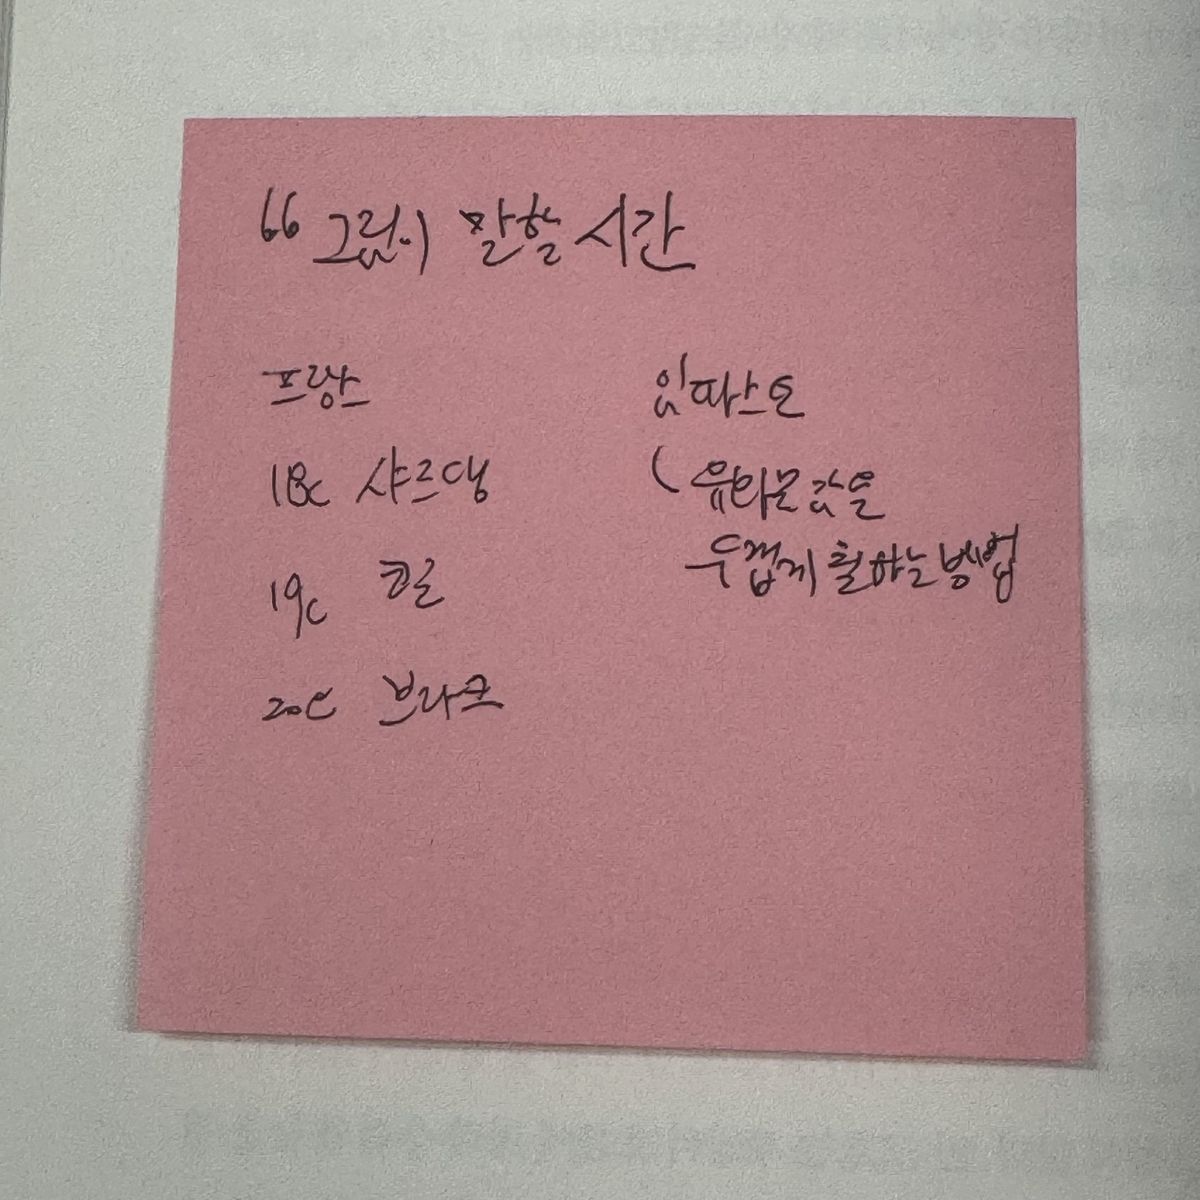 66 그림이 말할 시간
프랑스
18c 샤르댕
19c 코로
20c 브라크
임파스토
( 유화물감을
두껍게 칠하는 방법